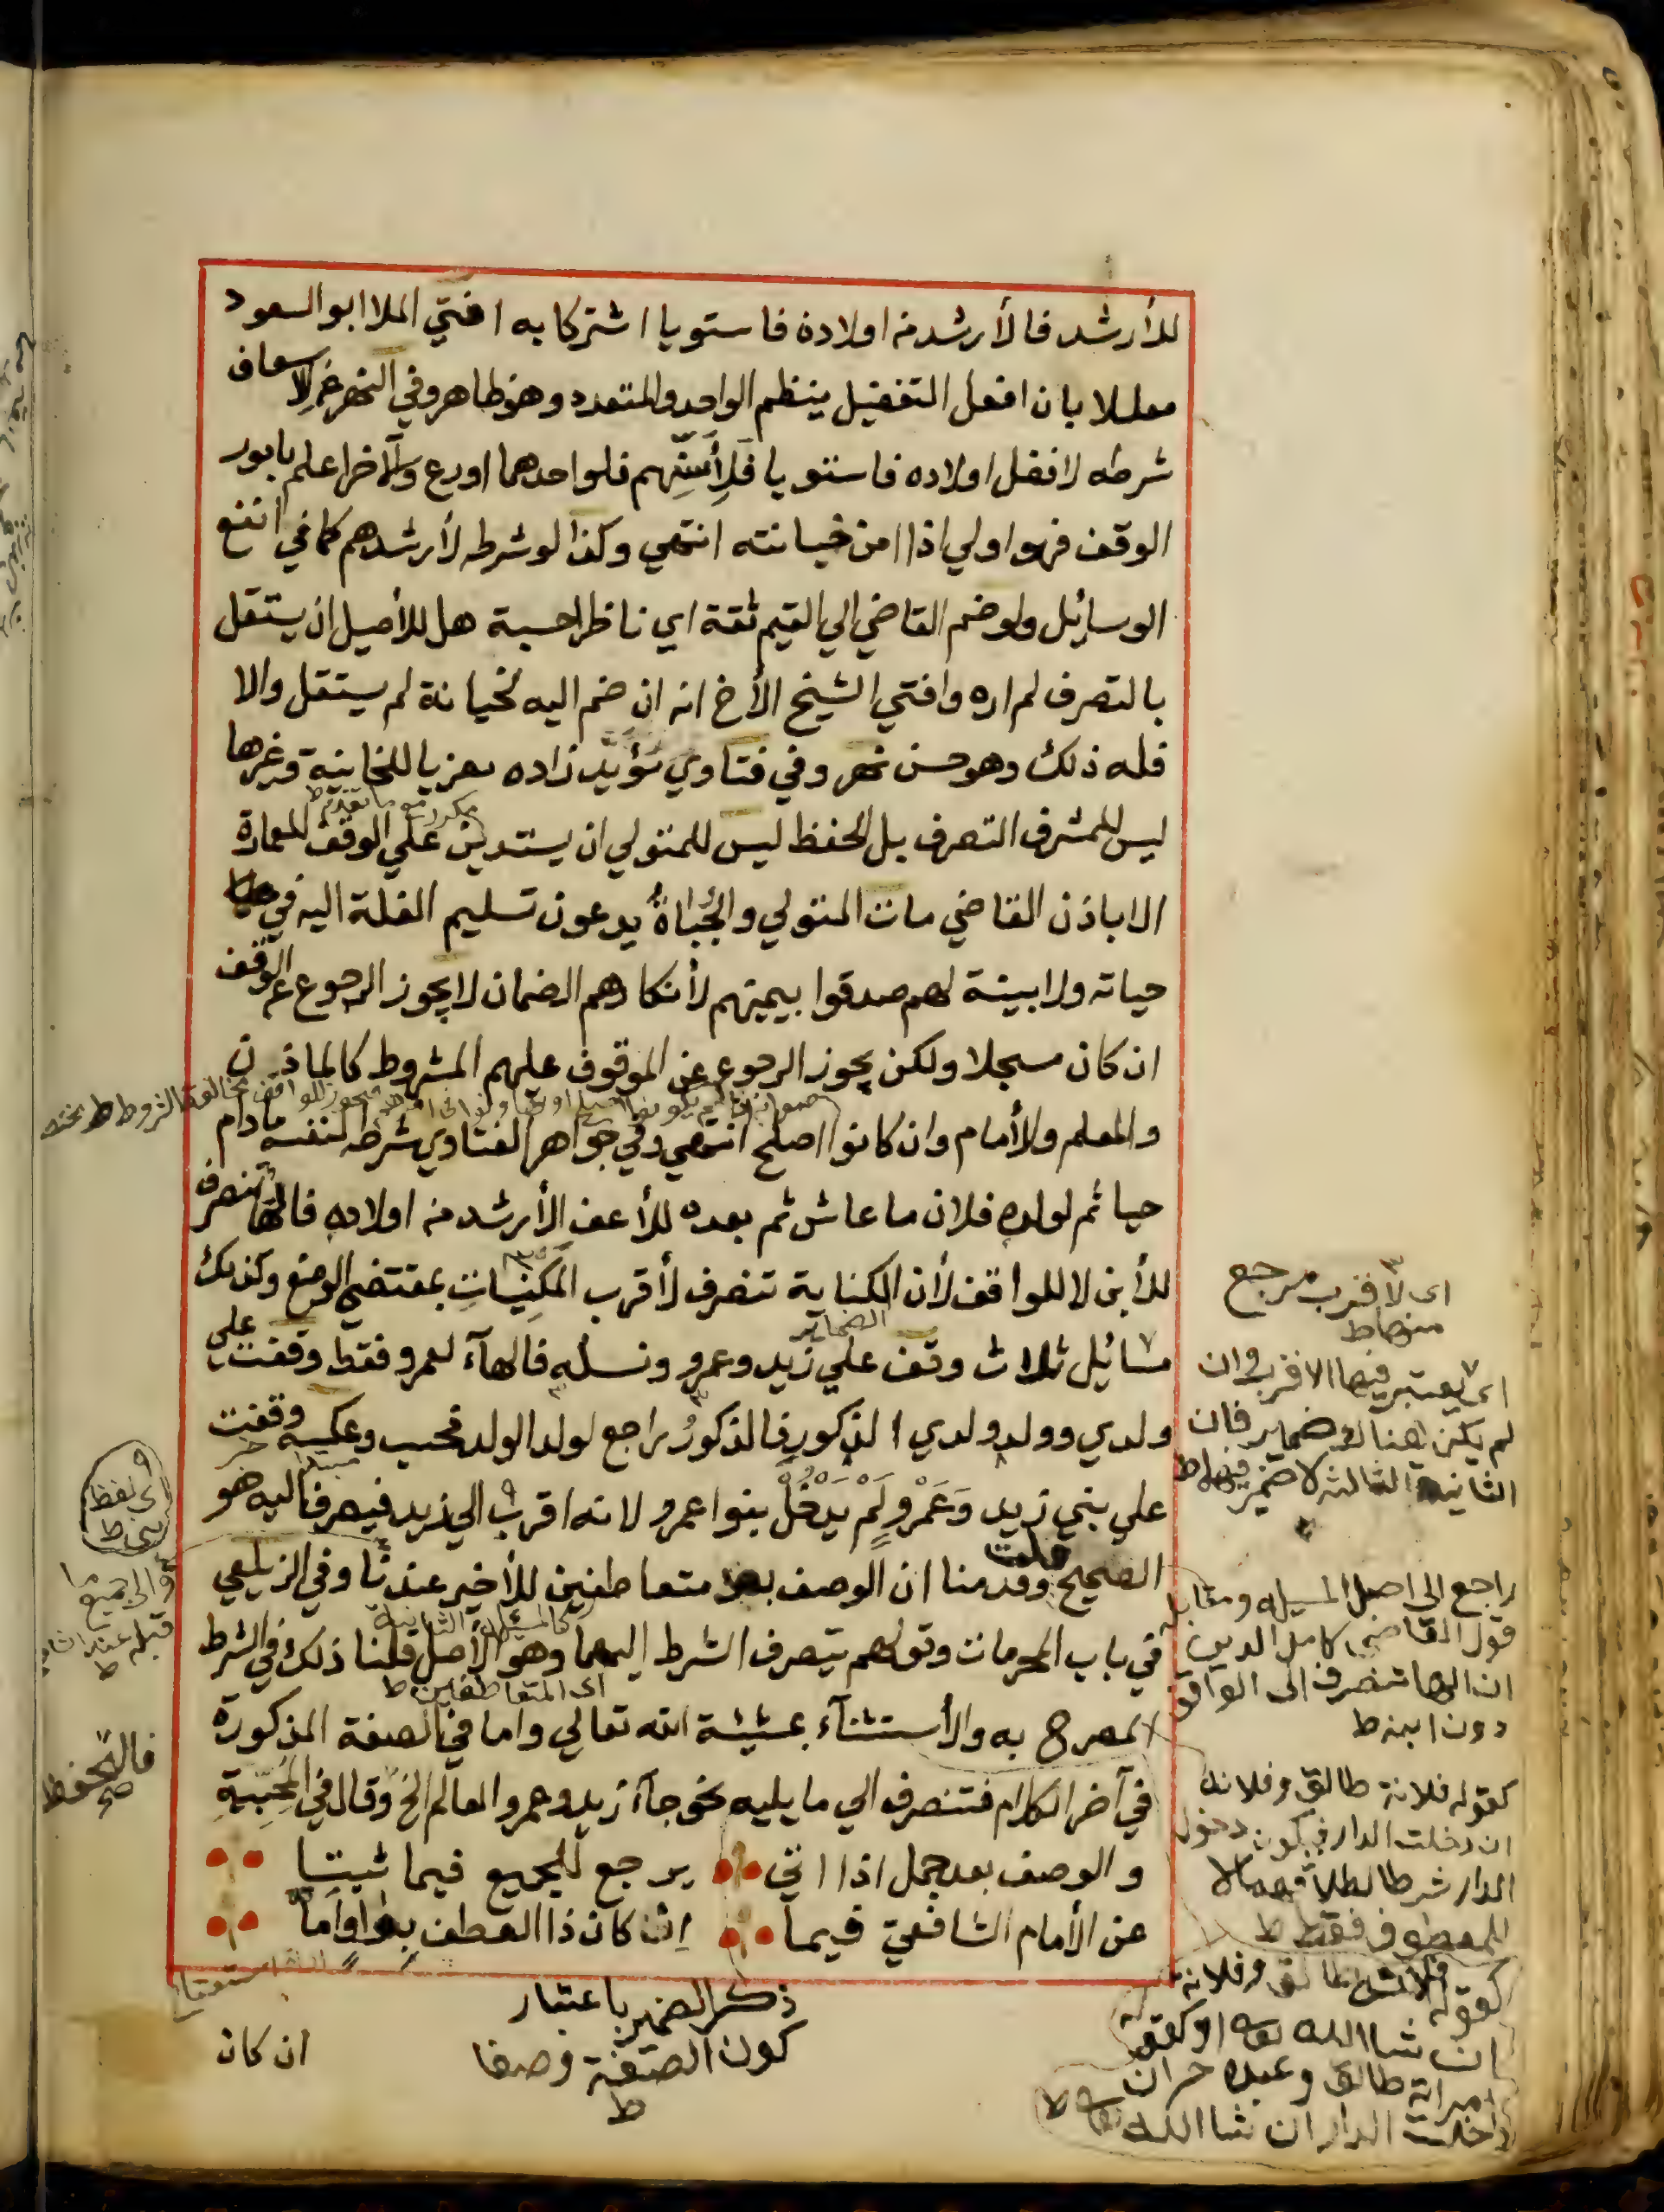 للأرشد فالأرشد من اولاده فاستويا اشتركا به افتي الملا ابو السعود
معللا بان افعل التفضيل ينظم الواحد والمتعدد وهو ظاهر وفي النهر عن الاسعاف
شرطه لافضل اولاده فاستويا فَلِأَسَنِّهم فلو احدهما اورع والآخر اعلم بامور
الوقف فهو اولي اذا امن خيانته انتهي وكذا لو شرطه لأرشدهم كما في انفع
الوسائل ولو ضم القاضي الي القيم ثقة اي ناظر حسبة هل للأصيل ان يستقل
بالتصرف لم اره وافتي الشيخ الأخ انه ان ضم اليه لخيانة لم يستقل والا
فله ذلك وهو حسن نهر وفي فتاوي مؤيد زاده معزيا للخانية وغيرها
مكرر مع ما تقدم ط
ليس للمشرف التصرف بل الحفظ ليس للمتولي ان يستدين علي الوقف للعمارة
الا باذن القاضي مات المتولي والجُباةُ يدعون تسليم الغلة اليه في
حياته ولا بينة لهم صدقوا بيمينهم لأنكارهم الضمان لا يجوز الرجوع عن الوقف
ان كان مسجلا ولكن يجوز الرجوع عن الموقوف عليهم المشروط كالماذ ن
والمعلم والأمام وان كانوا اصلح انتهي وفي جواهر الفتاوي شرطه لنفسه مادام
حيا ثم لولده فلان ما عاش ثم بعده للأعف الأرشد من اولاده فالهآ تنصرف
للأبن لا للواقف لأن الكناية تنصرف لأقرب المَكنِيّاتِ بمقتضي الوضع وكذلك
الضماير
مسائل ثلاث وقف علي زيد وعمرو ونسله فالهآء لعمرو فقط وقفت علي
ولدي وولد ولدي الذكور فالذكورُ راجع لولد الولد فحسب وعكسه وقفت
علي بني زيد وَعَمْرٍو لَمْ يَدْخُلْ بنوا عمرو لانه اقرب الي زيد فيصرف اليه هو
الصحيح قلت وقدمنا ان الوصف بعد متعاطفين للأخير عندنا وفي الزيلعي
كالمسئلة الثانية
في باب المحرمات وقولهم ينصرف الشرط اليهما وهو الأصل قلنا ذلك في الشرط
اى المتعاطفين ط
المصرح به والأستثنآء بمشيئة الله تعالي واما في الصفة المذكورة
في آخر الكلام فتنصرف الي ما يليه نحو جآء زيد وعمرو العالم الخ وقال في المُحِبِّيةِ
والوصف بعد جمل اذا اتي يرجع للجميع فيما ثبتا
عن الأمام الشافعيّ فيما اِن كان ذا العطف بواو امّا
ان كان
ذكر الضمير باعتبار
كون الصفة وصفا
ط
اى لاقرب مرجع
منها ط
اى يعتبر فيها الاقرب وان
لم يكن هناك ضماير فان
الثانية الثالثة لا ضمير فيها ط
راجع الى اصل المسيله ومقابله
قول القاضي كامل الدين
ان الها تنصرف الى الواقف
دون ابنه ط
كقوله فلانة طالق وفلانه
ان دخلت الدار فيكون دخول
الدار شرطا لطلاقهما لا
للمعطوف فقط ط
كقوله فلانة طالق وفلانة
ان شا الله او كقوله
امراته طالق وعبده حر ان
دخلت الدار ان شا الله ط
اى لفظ
بنى ط
والى جميع ما
قبله عند الشافعي
ط
فالتحفظ